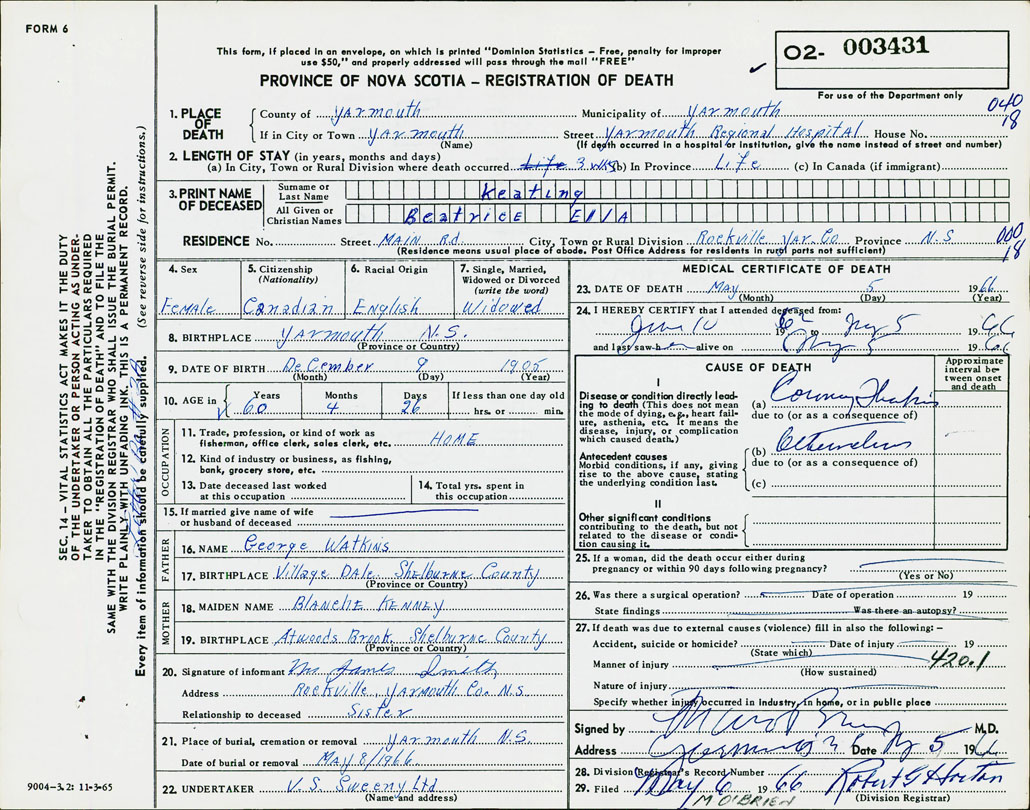 FORM 6
This form, if placed in an envelope, on which is printed "Dominion Statistics – Free, penalty for improper
use $50," and properly addressed will pass through the mail "FREE"
PROVINCE OF NOVA SCOTIA – REGISTRATION OF DEATH
O2- 003431
For use of the Department only
040
18
1. PLACE OF DEATH
County of Yarmouth Municipality of Yarmouth
If in City or Town Yarmouth Street Yarmouth Regional Hospital House No.
(Name) (If death occurred in a hospital or institution, give the name instead of street and number)
2. LENGTH OF STAY (in years, months and days)
(a) In City, Town or Rural Division where death occurred Life 3 wks (b) In Province Life (c) In Canada (if immigrant)
3. PRINT NAME OF DECEASED
Surname or Last Name Keating
All Given or Christian Names Beatrice Ella
RESIDENCE No. Street Main Rd. City, Town or Rural Division Rockville Yar. Co. Province N.S.
(Residence means usual place of abode. Post Office Address for residents in rural parts not sufficient)
000
18
4. Sex Female
5. Citizenship (Nationality) Canadian
6. Racial Origin English
7. Single, Married, Widowed or Divorced (write the word) Widowed
8. BIRTHPLACE Yarmouth N.S.
(Province or Country)
9. DATE OF BIRTH December 9 1905
(Month) (Day) (Year)
10. AGE in Years 60 Months 4 Days 26 If less than one day old hrs. or min.
OCCUPATION
11. Trade, profession, or kind of work as fisherman, office clerk, sales clerk, etc. HOME
12. Kind of industry or business, as fishing, bank, grocery store, etc.
13. Date deceased last worked at this occupation
14. Total yrs. spent in this occupation
15. If married give name of wife or husband of deceased
FATHER
16. NAME George Watkins
17. BIRTHPLACE Village Dale Shelburne County
(Province or Country)
MOTHER
18. MAIDEN NAME Blanche Kenney
19. BIRTHPLACE Atwoods Brook, Shelburne County
(Province or Country)
20. Signature of informant Mrs James Smith
Address Rockville, Yarmouth Co. N.S.
Relationship to deceased Sister
21. Place of burial, cremation or removal Yarmouth N.S.
Date of burial or removal May 8/1966
22. UNDERTAKER V. S. Sweeny Ltd
(Name and address)
MEDICAL CERTIFICATE OF DEATH
23. DATE OF DEATH May 5 1966
(Month) (Day) (Year)
24. I HEREBY CERTIFY that I attended deceased from:
June 10 1962 to May 5 1966
and last saw h alive on May 5 1966
CAUSE OF DEATH
Approximate interval between onset and death
I
Disease or condition directly leading to death (This does not mean the mode of dying, e.g., heart failure, asthenia, etc. It means the disease, injury, or complication which caused death.)
(a) Coronary
due to (or as a consequence of)
Antecedent causes
Morbid conditions, if any, giving rise to the above cause, stating the underlying condition last.
(b)
due to (or as a consequence of)
(c)
II
Other significant conditions contributing to the death, but not related to the disease or condition causing it.
25. If a woman, did the death occur either during pregnancy or within 90 days following pregnancy?
(Yes or No)
26. Was there a surgical operation? Date of operation 19
State findings Was there an autopsy?
27. If death was due to external causes (violence) fill in also the following: –
Accident, suicide or homicide? Date of injury 19
(State which)
Manner of injury 420.1
(How sustained)
Nature of injury
Specify whether injury occurred in industry, in home, or in public place
Signed by M.D.
Address Date My 5 196
28. Division Registrar's Record Number
29. Filed May 6 1966 Robert G Horton
(Division Registrar)
M O'BRIEN
SEC. 14 – VITAL STATISTICS ACT MAKES IT THE DUTY
OF THE UNDERTAKER OR PERSON ACTING AS UNDER-
TAKER TO OBTAIN ALL THE PARTICULARS REQUIRED
IN THE "REGISTRATION OF DEATH" AND TO FILE THE
SAME WITH THE DIVISION REGISTRAR WHO SHALL ISSUE THE BURIAL PERMIT.
WRITE PLAINLY WITH UNFADING INK – THIS IS A PERMANENT RECORD.
Every item of information should be carefully supplied. (See reverse side for instructions.)
9004-3.2: 11-3-65